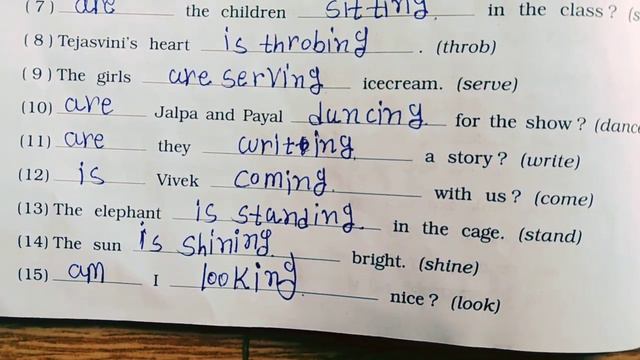 (7) are the children sitting in the class? (s
(8) Tejasvini's heart is throbing. (throb)
(9) The girls are serving icecream. (serve)
(10) are Jalpa and Payal duncing for the show? (danc
(11) are they writing a story? (write)
(12) is Vivek coming with us? (come)
(13) The elephant is standing in the cage. (stand)
(14) The sun is shining bright. (shine)
(15) am I looking nice? (look)